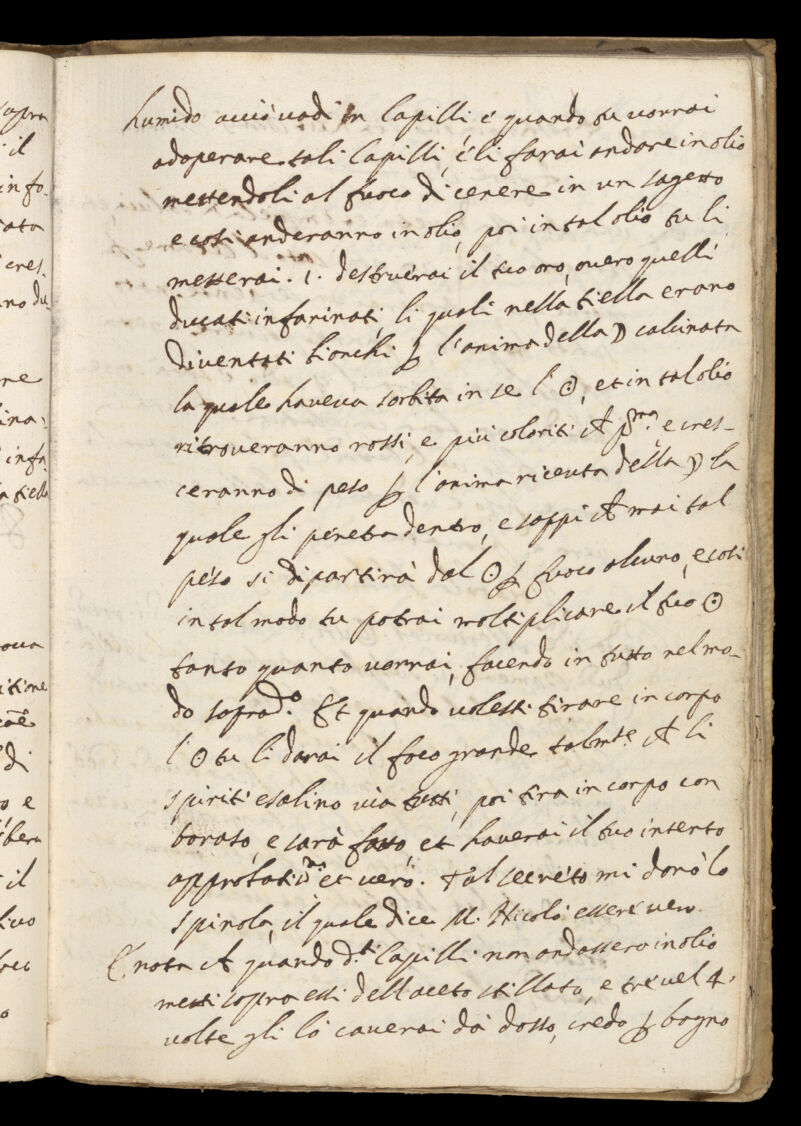 humido acciò vadi in Capilli e quando tu vorrai
adoperare tali Capilli, è li farai andare in olio
mettendoli al fuoco di cenere in un sagetto
e così anderanno in olio, poi in tal olio tu li
metterai .i. destruerai il tuo oro, overo quelli
ducati infarinati, li quali nella tiella erano
diventati bianchi ꝑ l'anima della ☽ calcinata
la quale haveva sorbita in se l' ☉, et in tal olio
ritroveranno rossi, e più coloriti ch pᵐᵃ e cres-
ceranno di peso ꝑ l'anima ricevta della ☽ la
quale gli penetra dentro, e sappi ch mai tal
peso si dipartirà dal ☉ ꝑ fuoco alcuno, e così
in tal modo tu potrai moltiplicare il tuo ☉
tanto quanto vorrai, facendo in tutto nel mo-
do sopradº. Et quando volesti tirare in corpo
l' ☉ tu li darai il foco grande talmtᵉ ch li
spiriti esalino via tutti, poi tira in corpo con
boraso, e sarà fatto, et haverai il tuo intento
approbatiᵐᵒ et vero. Tal secreto mi donò lo
Spinola, il quale dice M. Nicolò essere vero.
E nota ch quando dᵗⁱ Capilli non andassero in olio
metti sopra essi dell aceto stillato, e tre vel 4.
volte gli lo caverai da dosso, credo ꝑ bagno
apra
il
cres-
no du-
ne
ina:
la tiella
itione
di
e
il